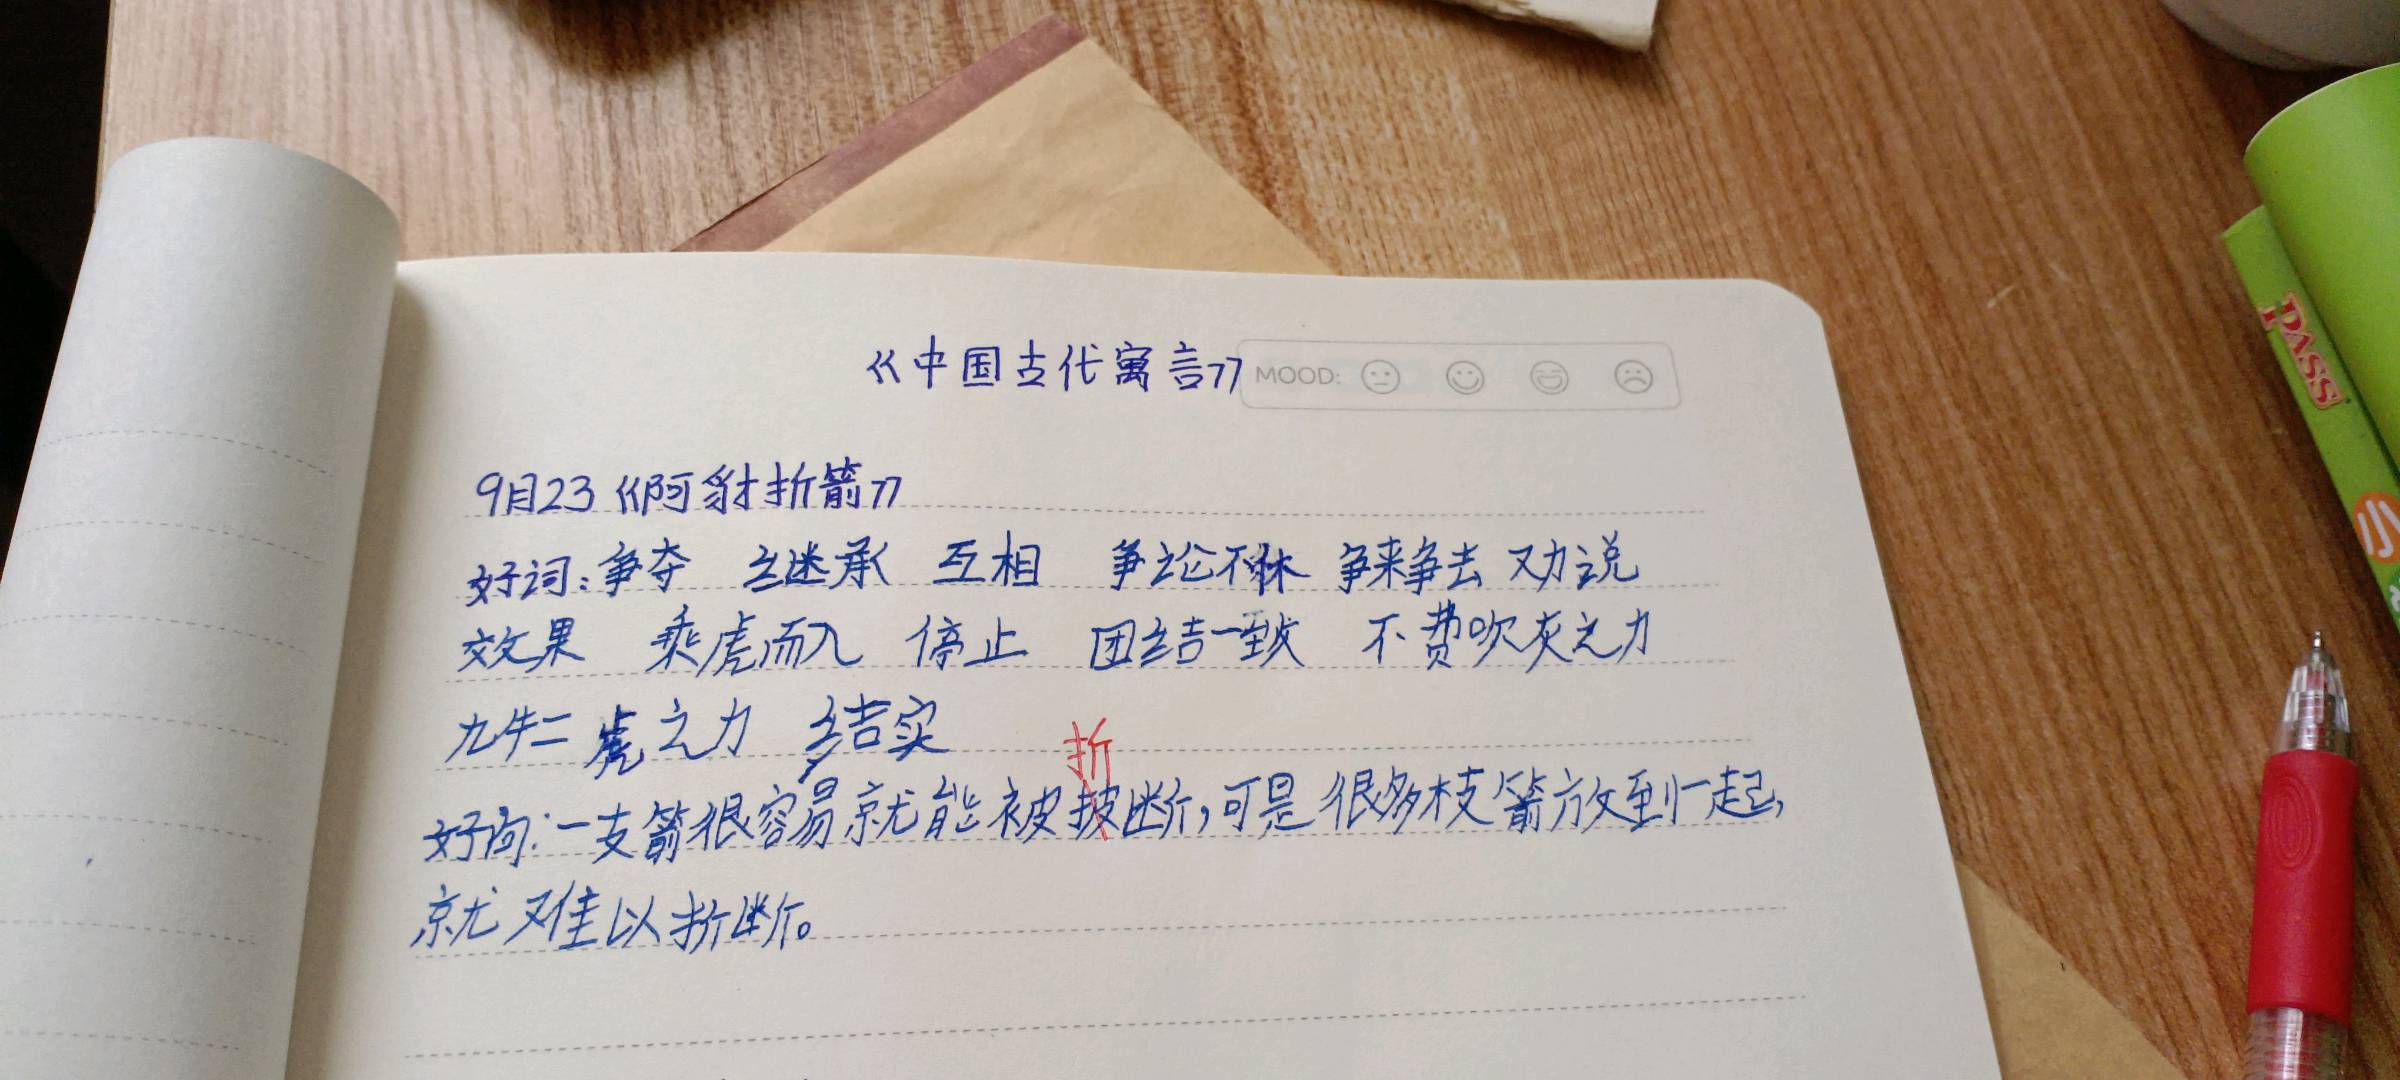 《中国古代寓言》
MOOD:
9月23《阿豺折箭》
好词：争夺 继承 互相 争论不休 争来争去 劝说
效果 乘虎而入 停止 团结一致 不费吹灰之力
九牛二虎之力 结实
折
好句：一支箭很容易就能被披断，可是很多枝箭放到一起，
就难以折断。
PASS
小